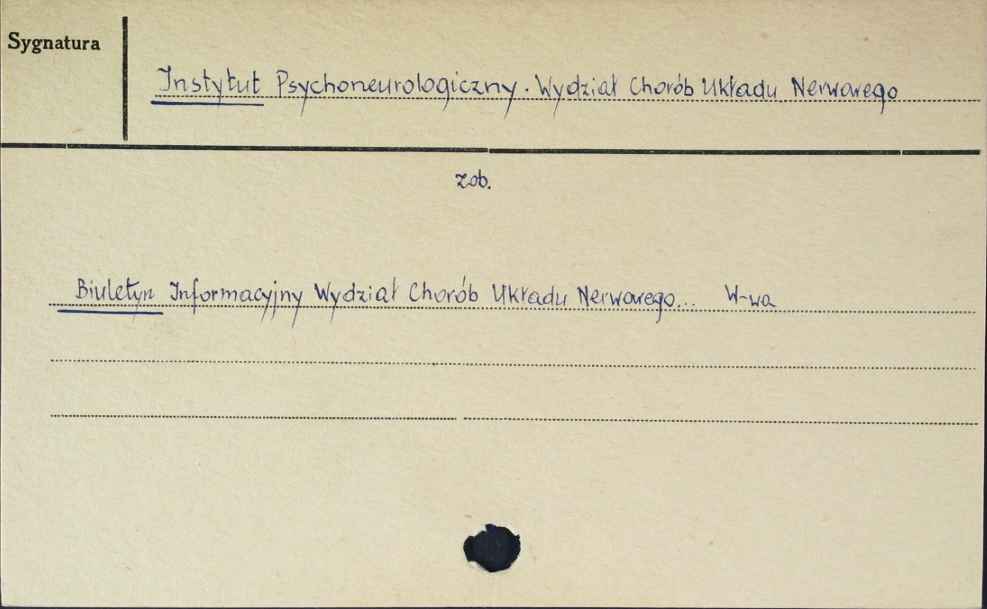 Sygnatura
Instytut Psychoneurologiczny. Wydział Chorób Układu Nerwowego
zob.
Biuletyn Informacyjny Wydział Chorób Układu Nerwowego... W-wa